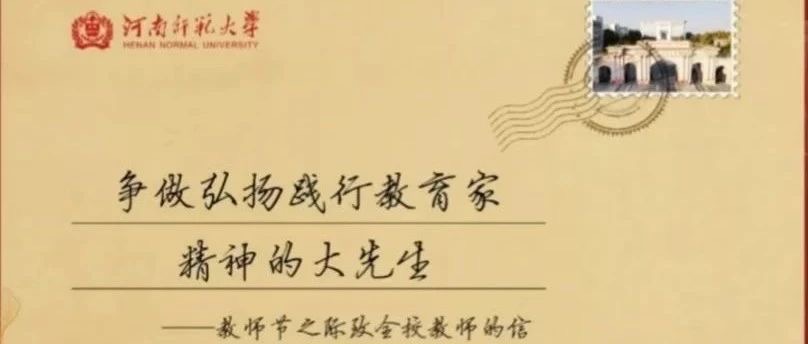 河南师范大学
HENAN NORMAL UNIVERSITY
争做弘扬践行教育家
精神的大先生
——教师节之际致全校教师的信